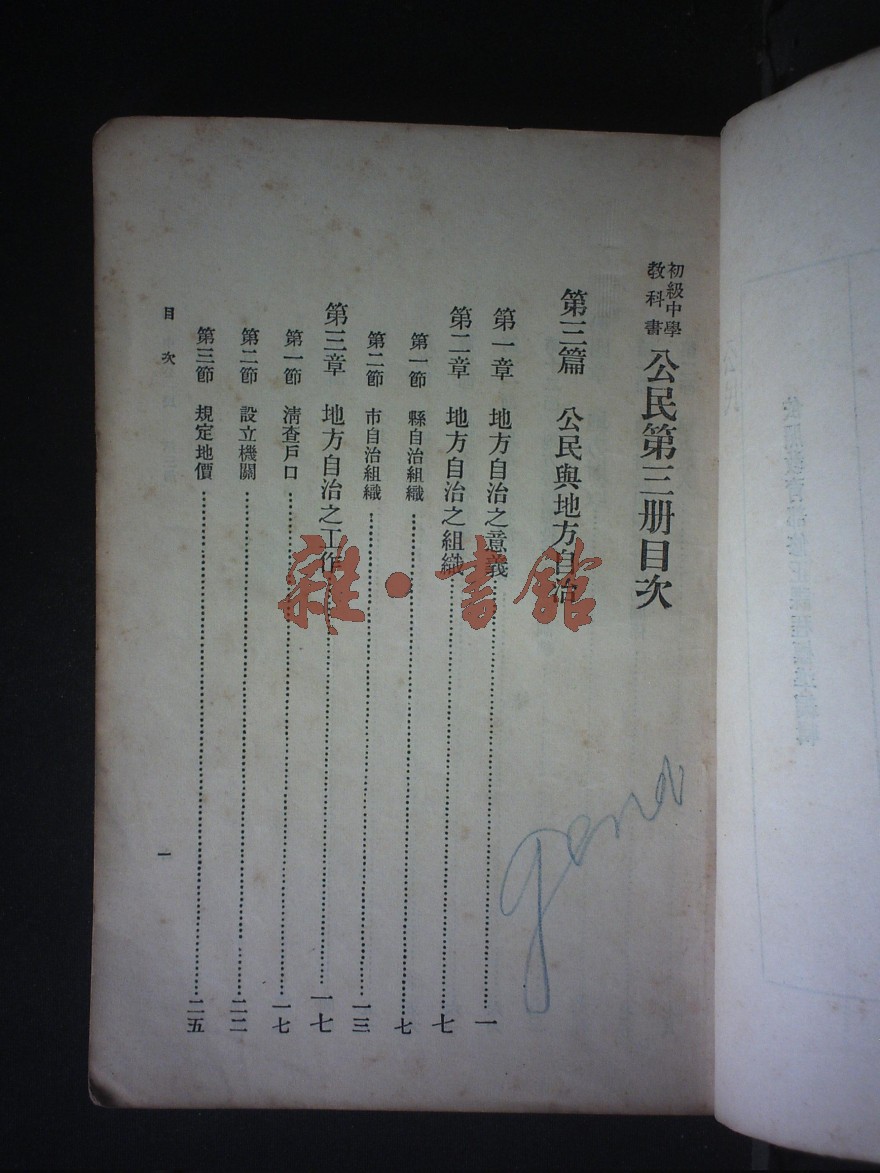 初級中學
教科書 公民第三册目次
第三篇 公民與地方自治
第一章 地方自治之意義 一
第二章 地方自治之組織 七
第一節 縣自治組織 七
第二節 市自治組織 一三
第三章 地方自治之工作 一七
第一節 清查戶口 一七
第二節 設立機關 二二
第三節 規定地價 二五
目次
一
雜·書館